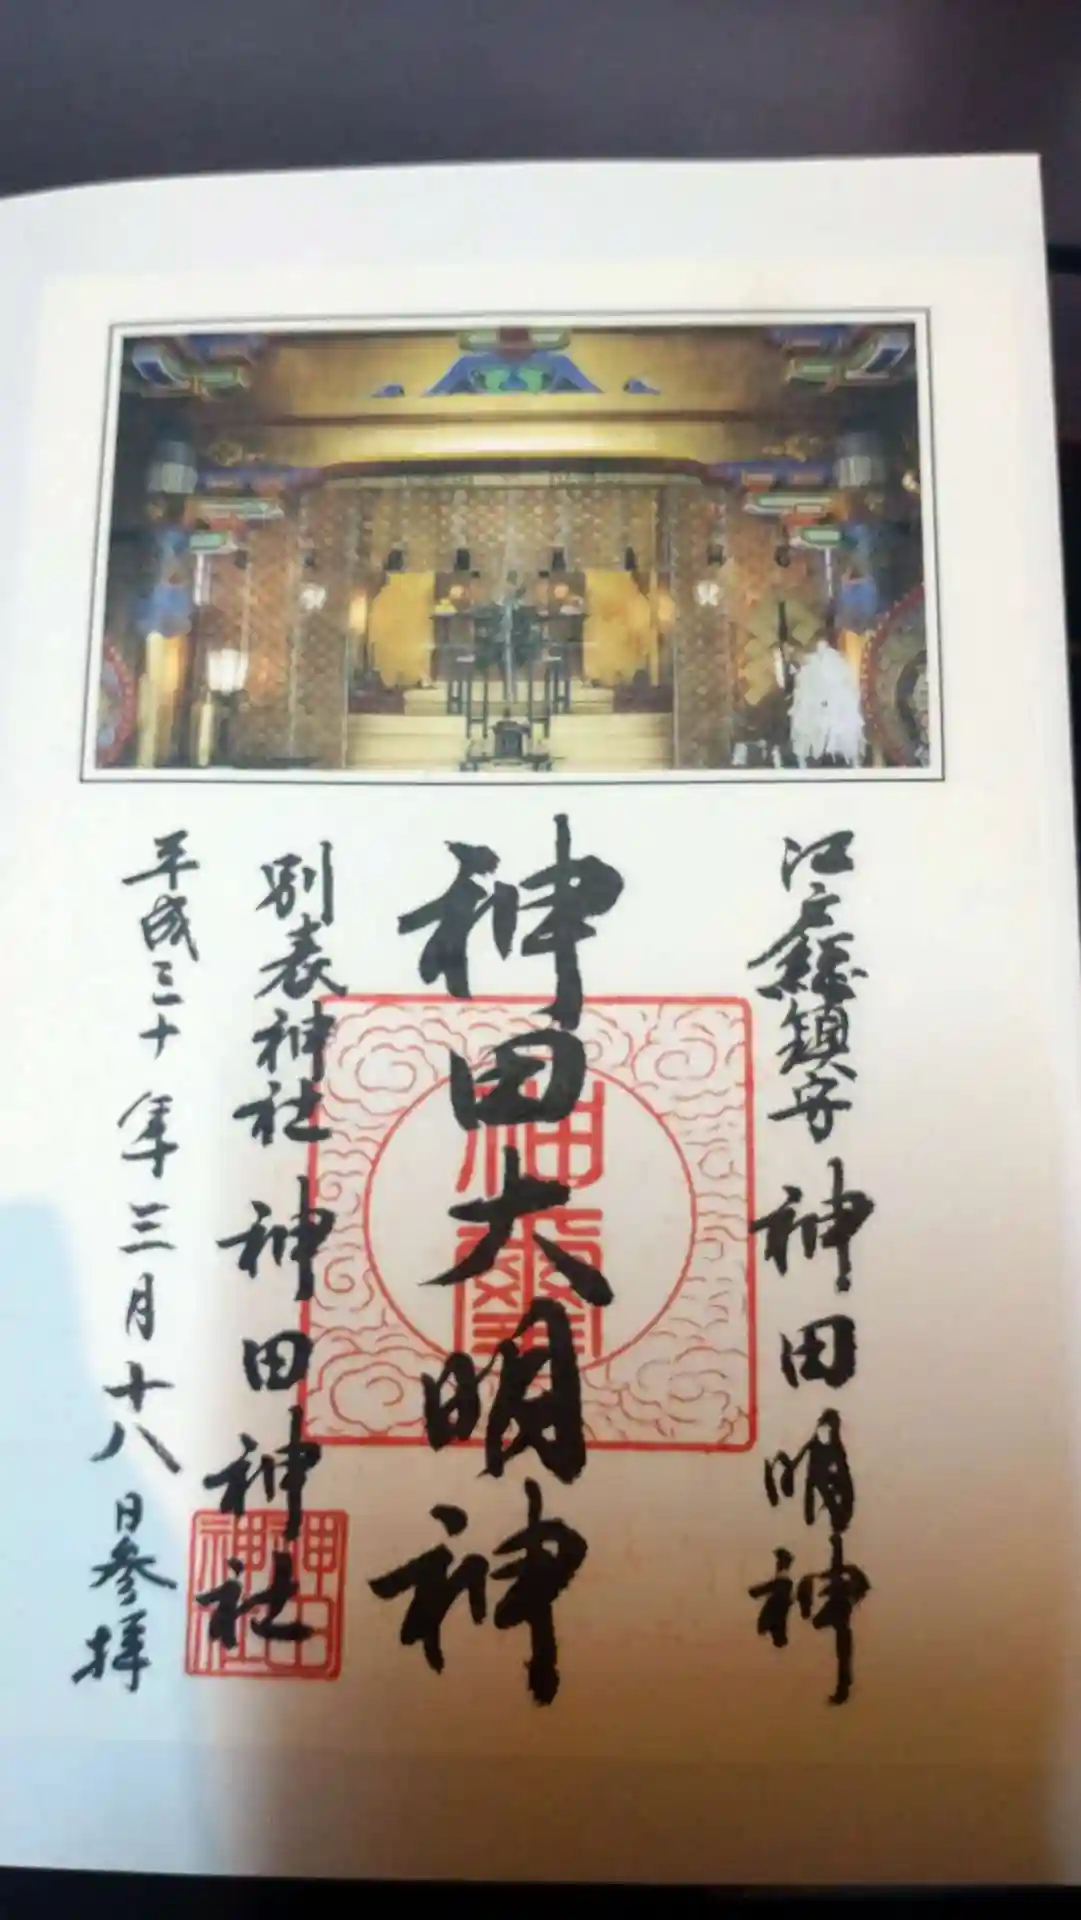 江戸總鎮守 神田明神
神田大明神
別表神社 神田神社
平成三十年三月十八日参拝
神璽
神田
神社